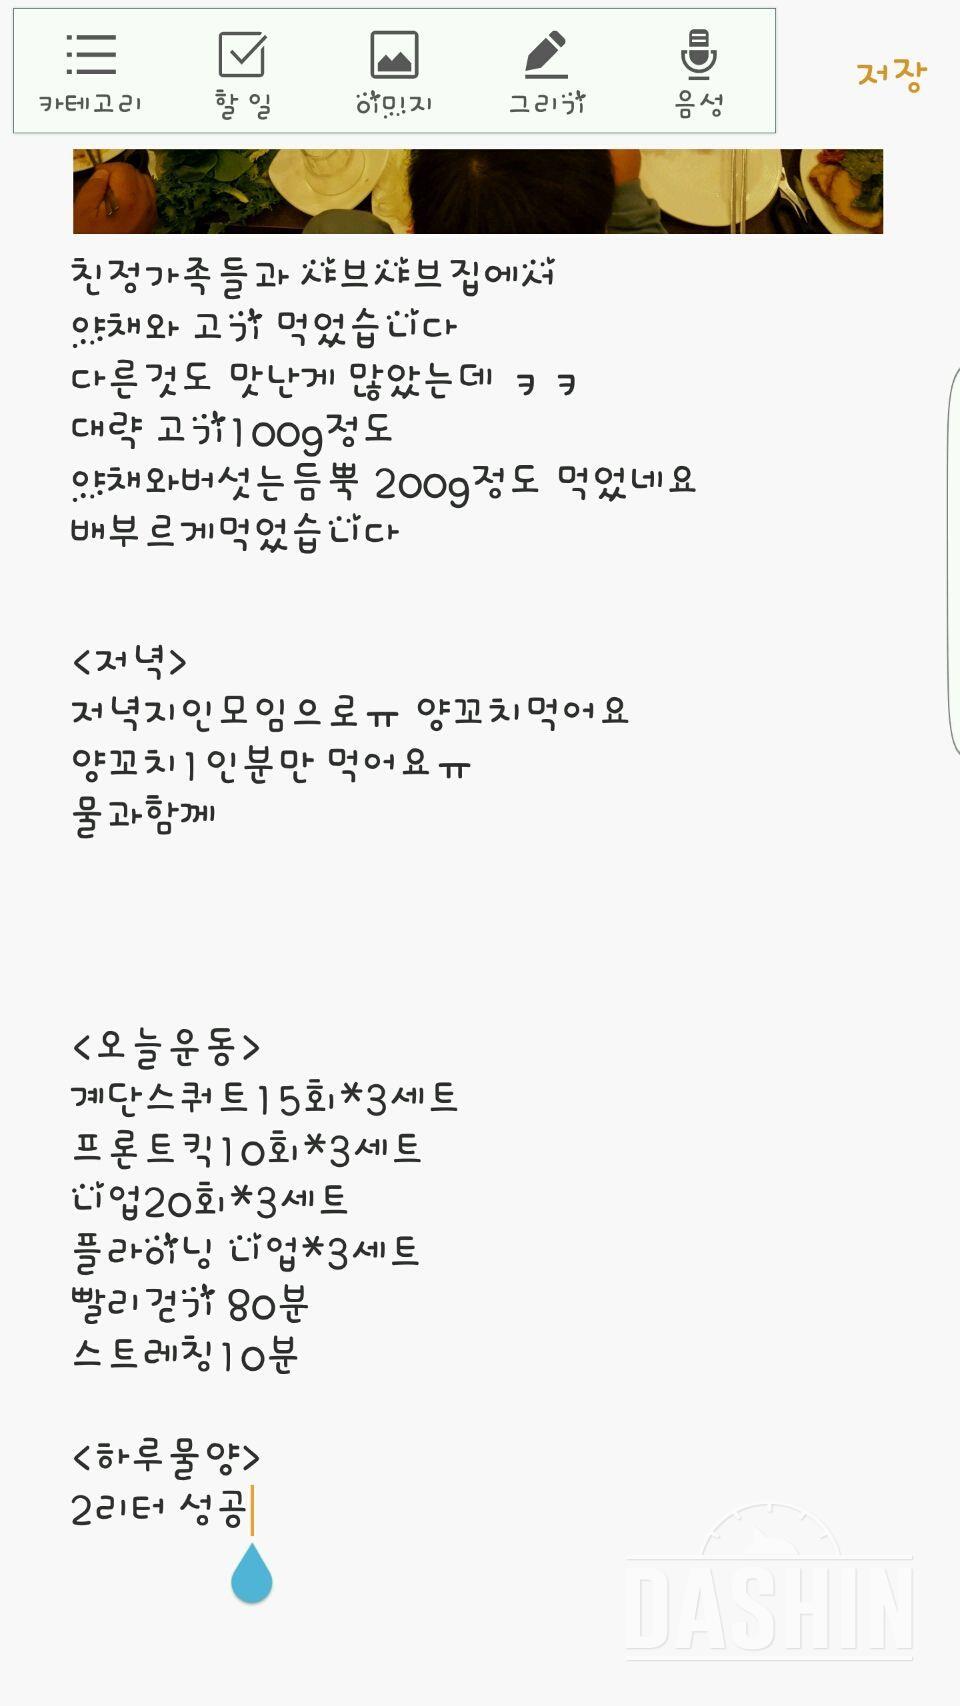 카테고리 할 일 이미지 그리기 음성 저장
친정가족들과 샤브샤브집에서
야채와 고기 먹었습니다
다른것도 맛난게 많았는데 ㅋㅋ
대략 고기100g정도
야채와버섯는듬뿍 200g정도 먹었네요
배부르게먹었습니다
<저녁>
저녁지인모임으로ㅠ 양꼬치먹어요
양꼬치1인분만 먹어요ㅠ
물과함께
<오늘운동>
계단스쿼트15회*3세트
프론트킥10회*3세트
니업20회*3세트
플라이닝 니업*3세트
빨리걷기 80분
스트레칭10분
<하루물양>
2리터 성공
DASHIN